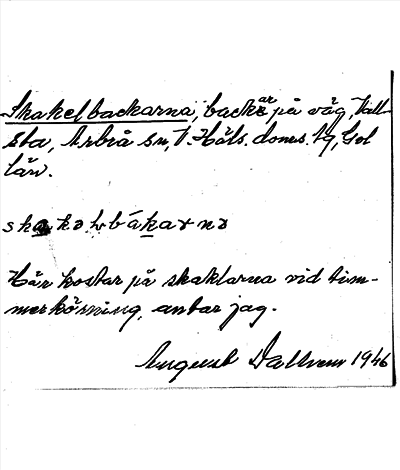 Skakelbackarna, backar på väg, Vall-
sta, Arbrå sn, V. Häls. doms. tg, Gvl
län.
skakəlbákarnə
Här kostar på skaklarna vid tim-
merkörning, antar jag.
August 1946